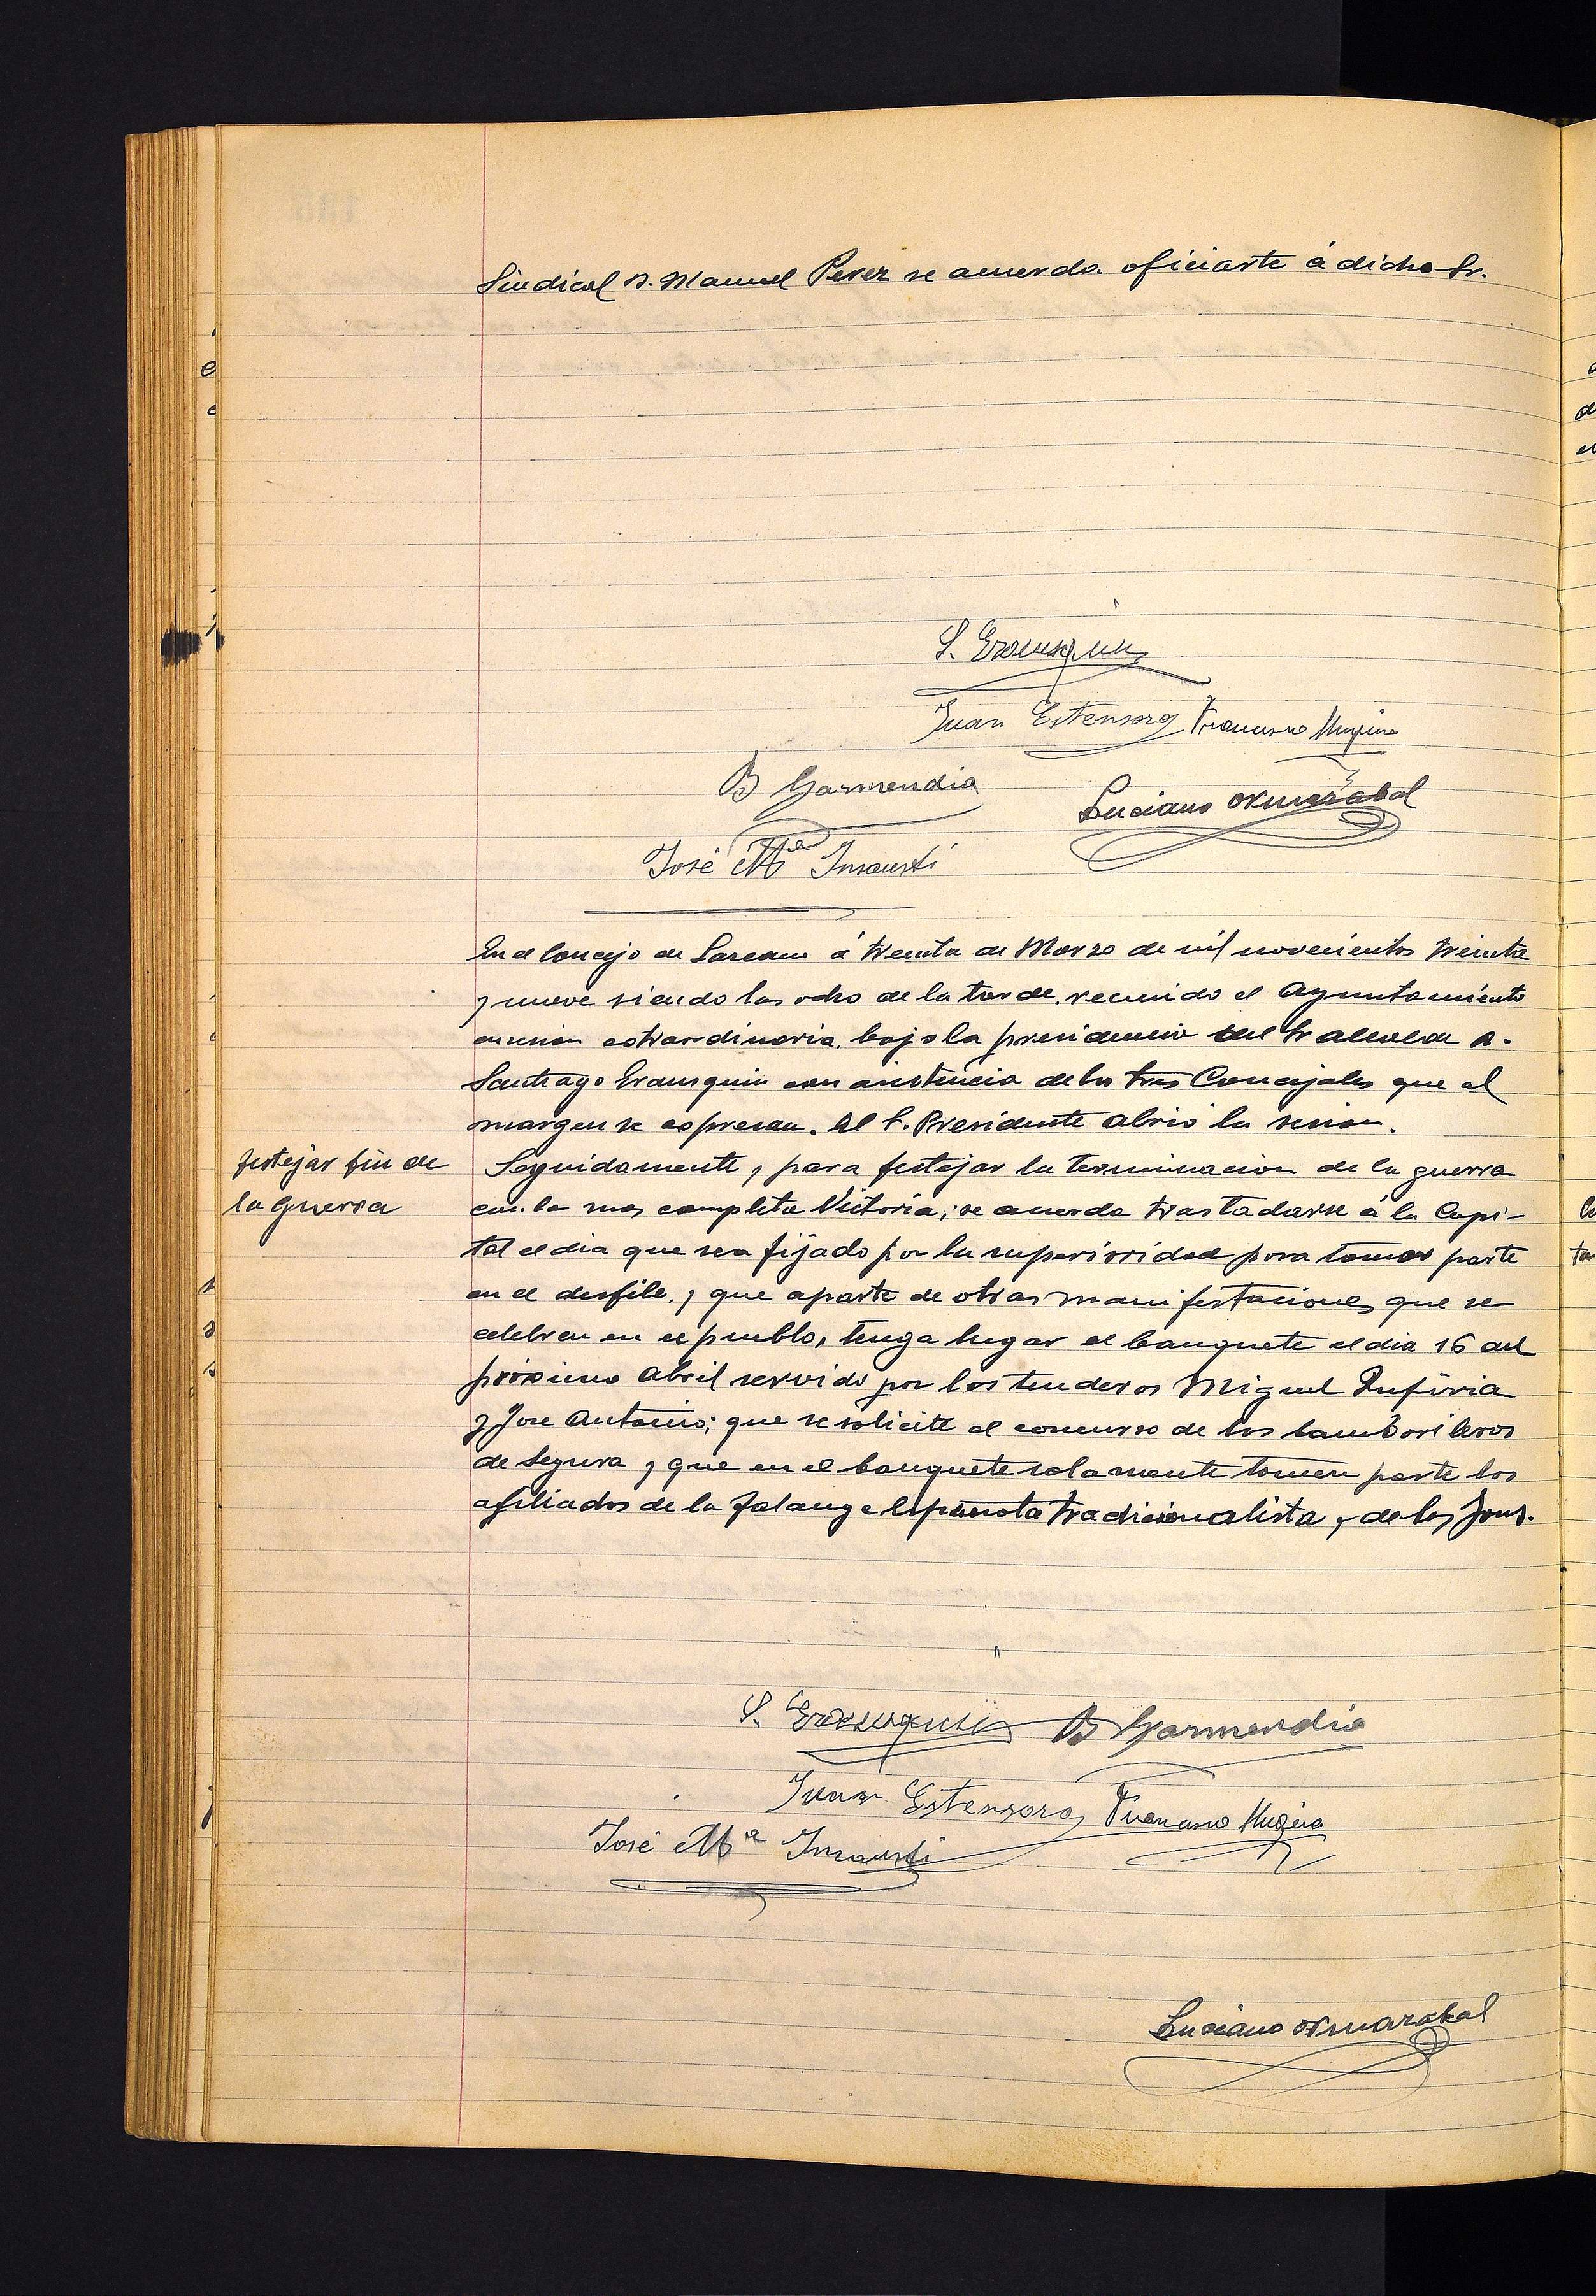 Sindical D. Manuel Perez se acuerda oficiarle á dicho Sr.
S. Eransquin
Juan Estensoro Francisco Mugica
B Garmendia
Luciano Ormazabal
José Mª Insausti
En el Concejo de Lazcano á treinta de Marzo de mil novecientos treinta
y nueve siendo las ocho de la tarde, reunido el Ayuntamiento
en sesion estraordinaria, bajo la presidencia del Sr alcalde D.
Santiago Eransquin con asistencia de los tres Concejales que al
margen se espresan. El S. Presidente abrió la sesion.
festejar fin de
la guerra
Seguidamente, para festejar la terminacion de la guerra
con la mas completa Victoria; se acuerda trasladarse á la Capi-
tal el dia que sea fijado por la superioridad para tomar parte
en el desfile, y que aparte de otras manifestaciones que se
celebren en el pueblo, tenga lugar el banquete el dia 16 del
próximo Abril servido por los tenderos Miguel
y Jose Antonio; que se solicite el concurso de los tamborileros
de Segura y que en el banquete solamente tomen parte los
afiliados de la Falange Española tradicionalista y de las Jons.
S. Eransquin B Garmendia
Juan Estensoro Francisco Mugica
José Mª Insausti
Luciano Ormazabal